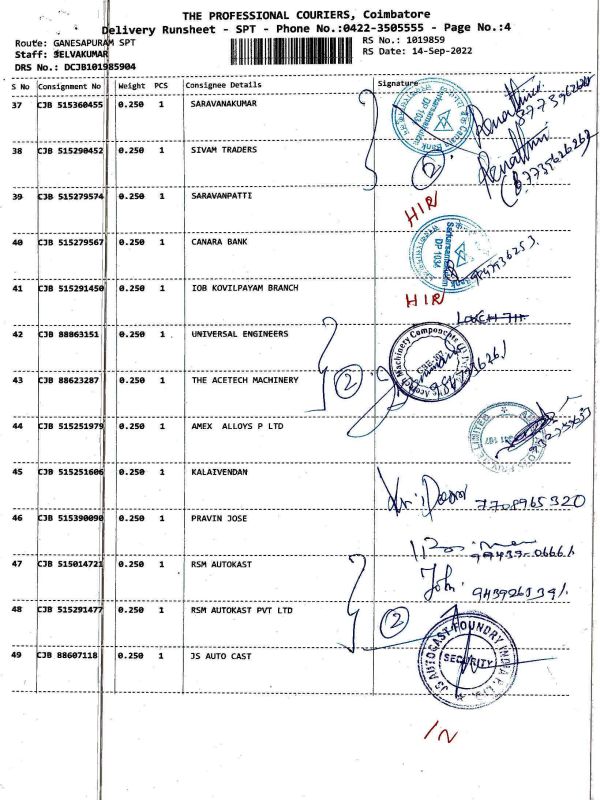 THE PROFESSIONAL COURIERS, Coimbatore
Delivery Runsheet - SPT - Phone No.:0422-3505555 - Page No.:4
Route: GANESAPURAM SPT
RS No.: 1019859
Staff: SELVAKUMAR
RS Date: 14-Sep-2022
DRS No.: DCJB101985904
S No Consignment No Weight PCS Consignee Details Signature
37 CJB 515360455 0.250 1 SARAVANAKUMAR
38 CJB 515290452 0.250 1 SIVAM TRADERS
2
39 CJB 515279574 0.250 1 SARAVANPATTI
HIR
40 CJB 515279567 0.250 1 CANARA BANK
41 CJB 515291450 0.250 1 IOB KOVILPAYAM BRANCH
HIR
42 CJB 88863151 0.250 1 UNIVERSAL ENGINEERS
43 CJB 88623287 0.250 1 THE ACETECH MACHINERY
2
44 CJB 515251979 0.250 1 AMEX ALLOYS P LTD
45 CJB 515251606 0.250 1 KALAIVENDAN
7708965320
46 CJB 515390090 0.250 1 PRAVIN JOSE
47 CJB 515014721 0.250 1 RSM AUTOKAST
John
48 CJB 515291477 0.250 1 RSM AUTOKAST PVT LTD
2
49 CJB 88607118 0.250 1 JS AUTO CAST
JS AUTOCAST FOUNDRY INDIA P. LTD
SECURITY